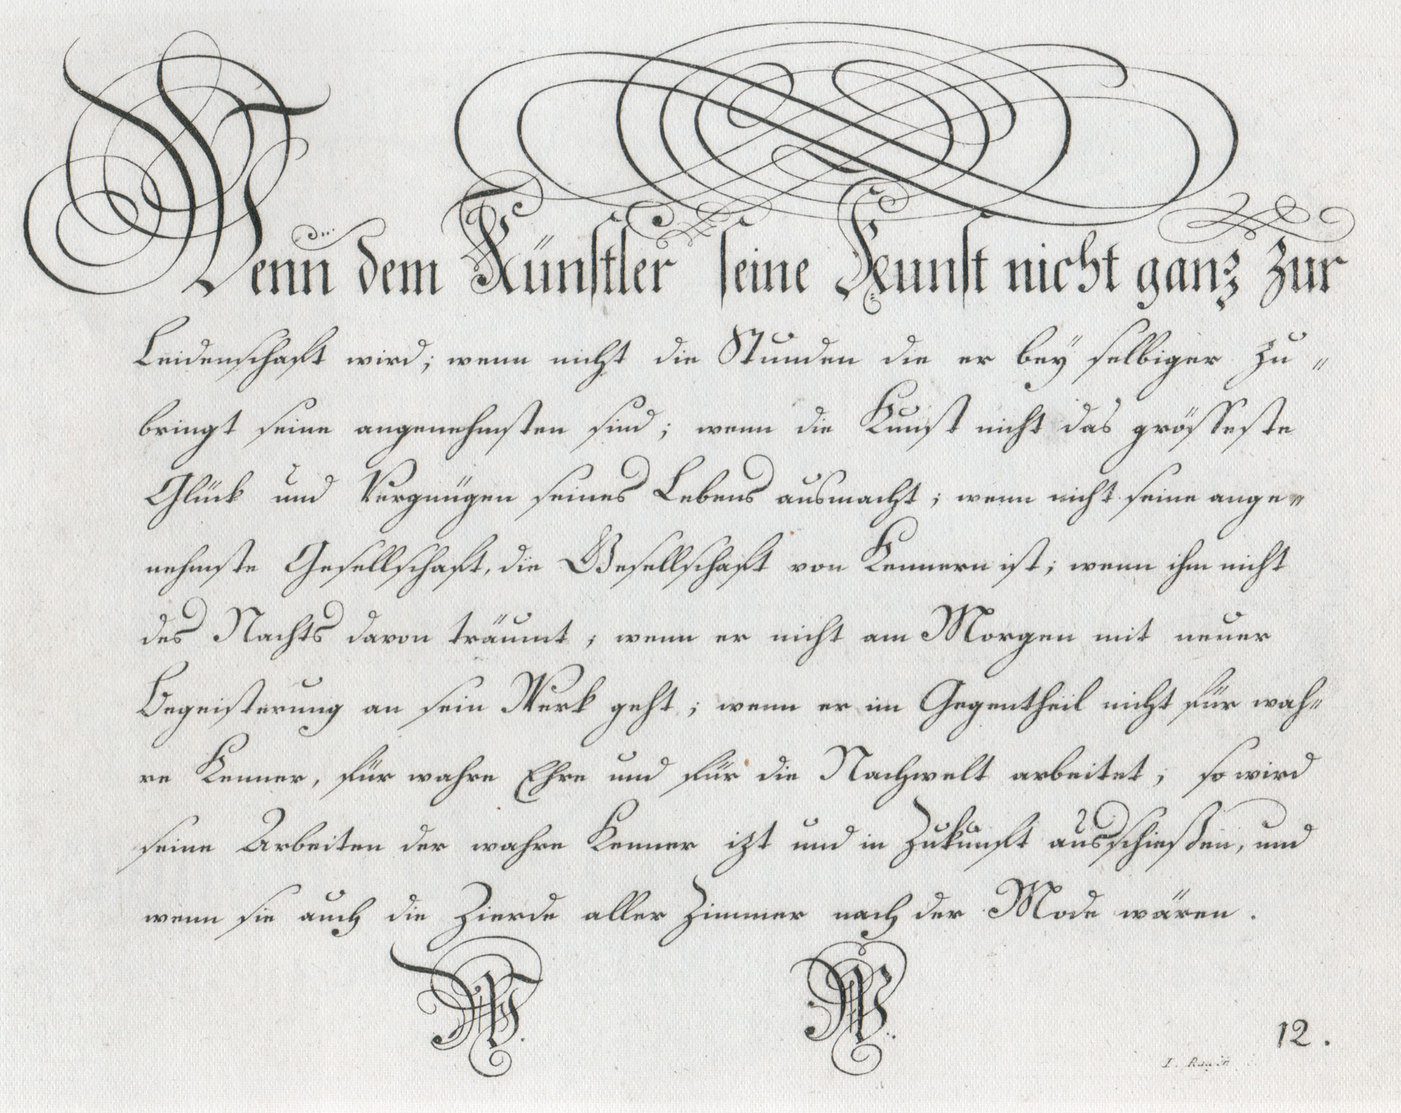 Wenn dem Künstler seine Kunst nicht ganz zur
Leidenschaft wird; wenn nicht die Stunden die er bey selbiger zu=
bringt seine angenehmsten sind; wenn die Kunst nicht das grösseste
Glück und Vergnügen seines Lebens ausmacht; wenn nicht seine ange=
nehmste Gesellschaft, die Gesellschaft von Kennern ist; wenn ihm nicht
des Nachts davon träumt; wenn er nicht am Morgen mit neuer
Begeisterung an sein Werk geht; wenn er im Gegentheil nicht für wah=
re Kenner, für wahre Ehre und für die Nachwelt arbeitet; so wird
seine Arbeiten der wahre Kenner izt und in Zukunft ausschießen, und
wenn sie auch die Zierde aller Zimmer nach der Mode wären.
W. W.
12.